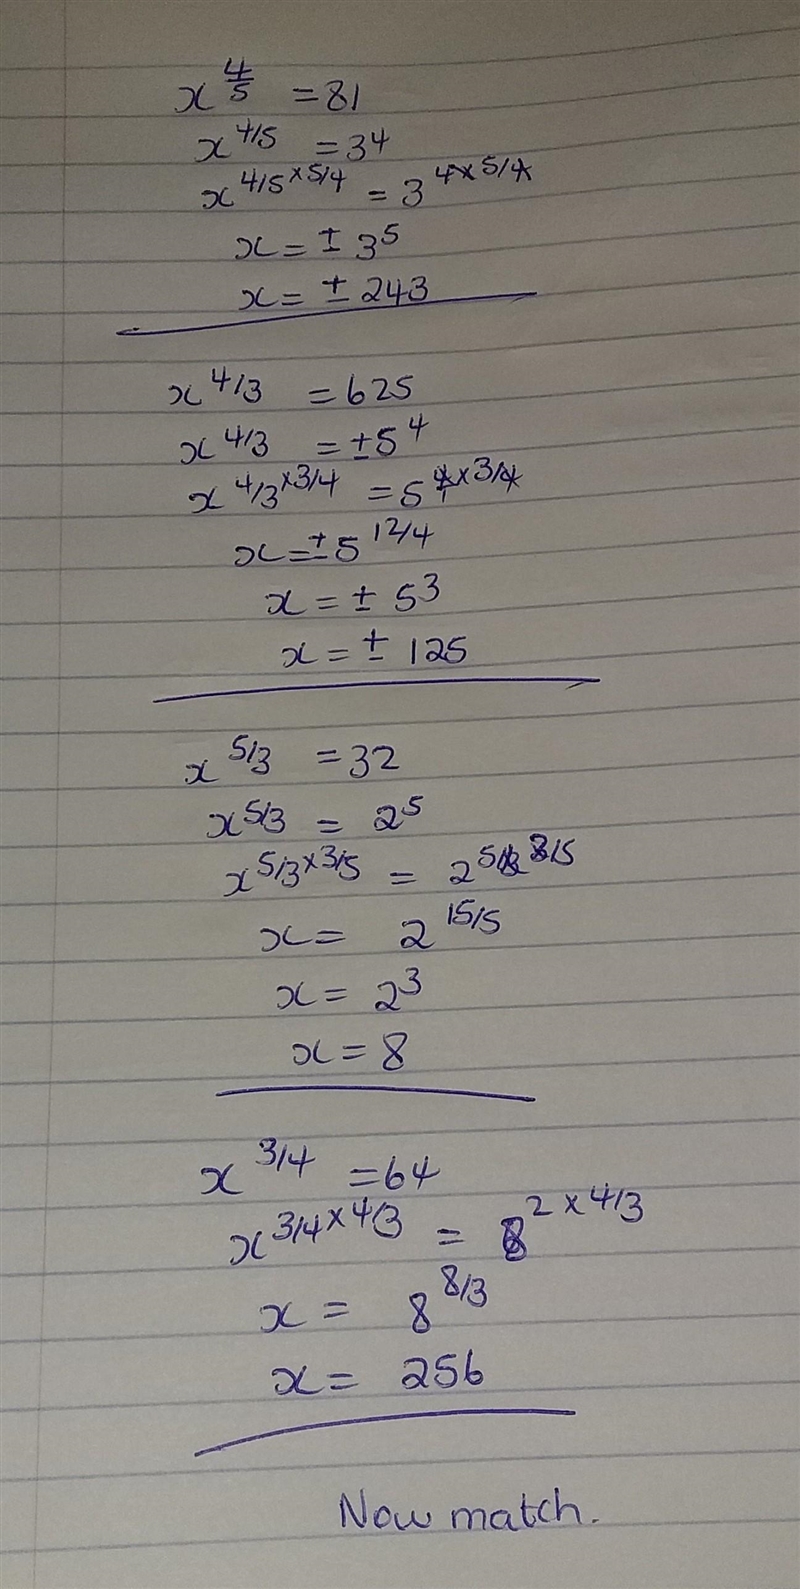 x^4/5 = 81
x^4/5 = 3^4
x^4/5 × 5/4 = 3^4 × 5/4
x = ± 3^5
x = ± 243
x^4/3 = 625
x^4/3 = ±5^4
x^4/3 × 3/4 = 5^4 × 3/4
x = ±5^12/4
x = ± 5^3
x = ± 125
x^5/3 = 32
x^5/3 = 2^5
x^5/3 × 3/5 = 2^5 × 3/5
x = 2^15/5
x = 2^3
x = 8
x^3/4 = 64
x^3/4 × 4/3 = 8^2 × 4/3
x = 8^8/3
x = 256
Now match.